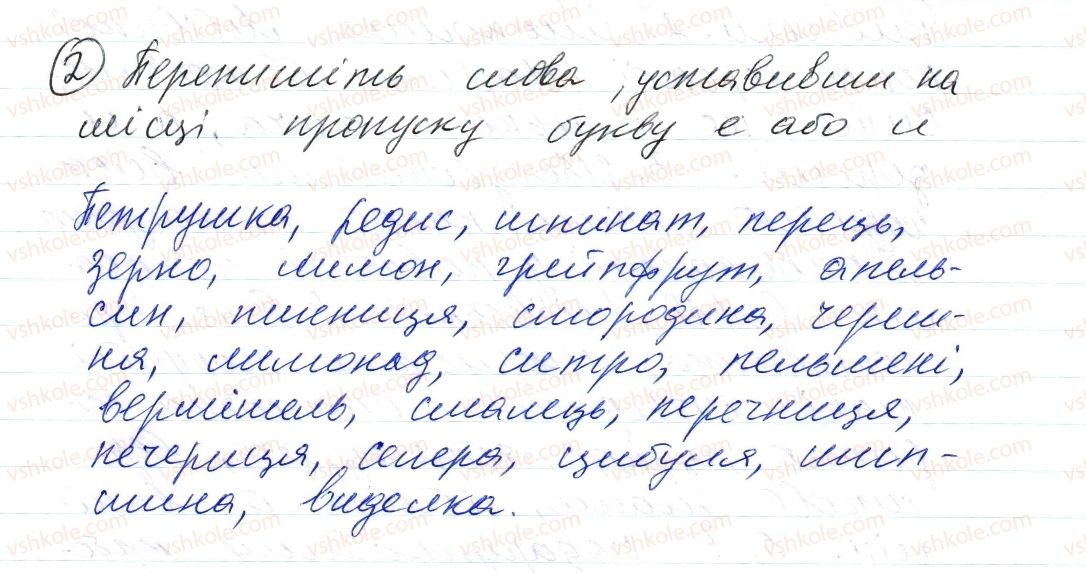 2 Перепишіть слова, уставивши на
місці пропуску букву е або и
Петрушка, редис, шпинат, перець,
зерно, лимон, грейпфрут, апель-
син, пшениця, смородина, череш-
ня, лимонад, ситро, пельмені,
вермішель, смалець, перечниця,
печериця, селера, цибуля, шип-
шина, виделка.